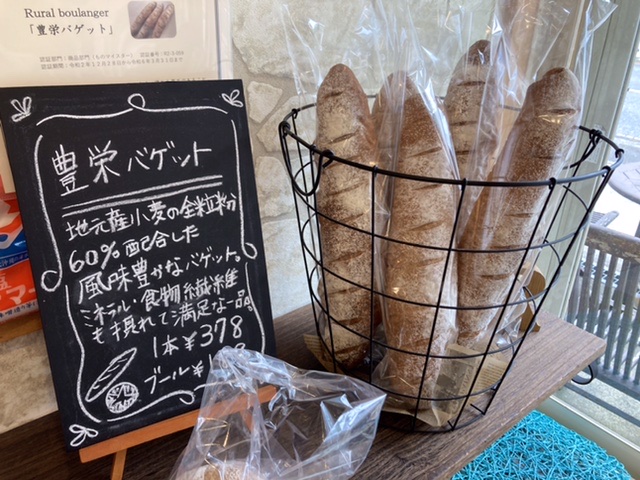 Rural boulanger
「豊栄バゲット」
豊栄バゲット
地元産小麦の全粒粉
60%配合した
風味豊かなバゲット。
ミネラル・食物繊維
も摂れて満足な一品。
1本¥378
ブール¥1